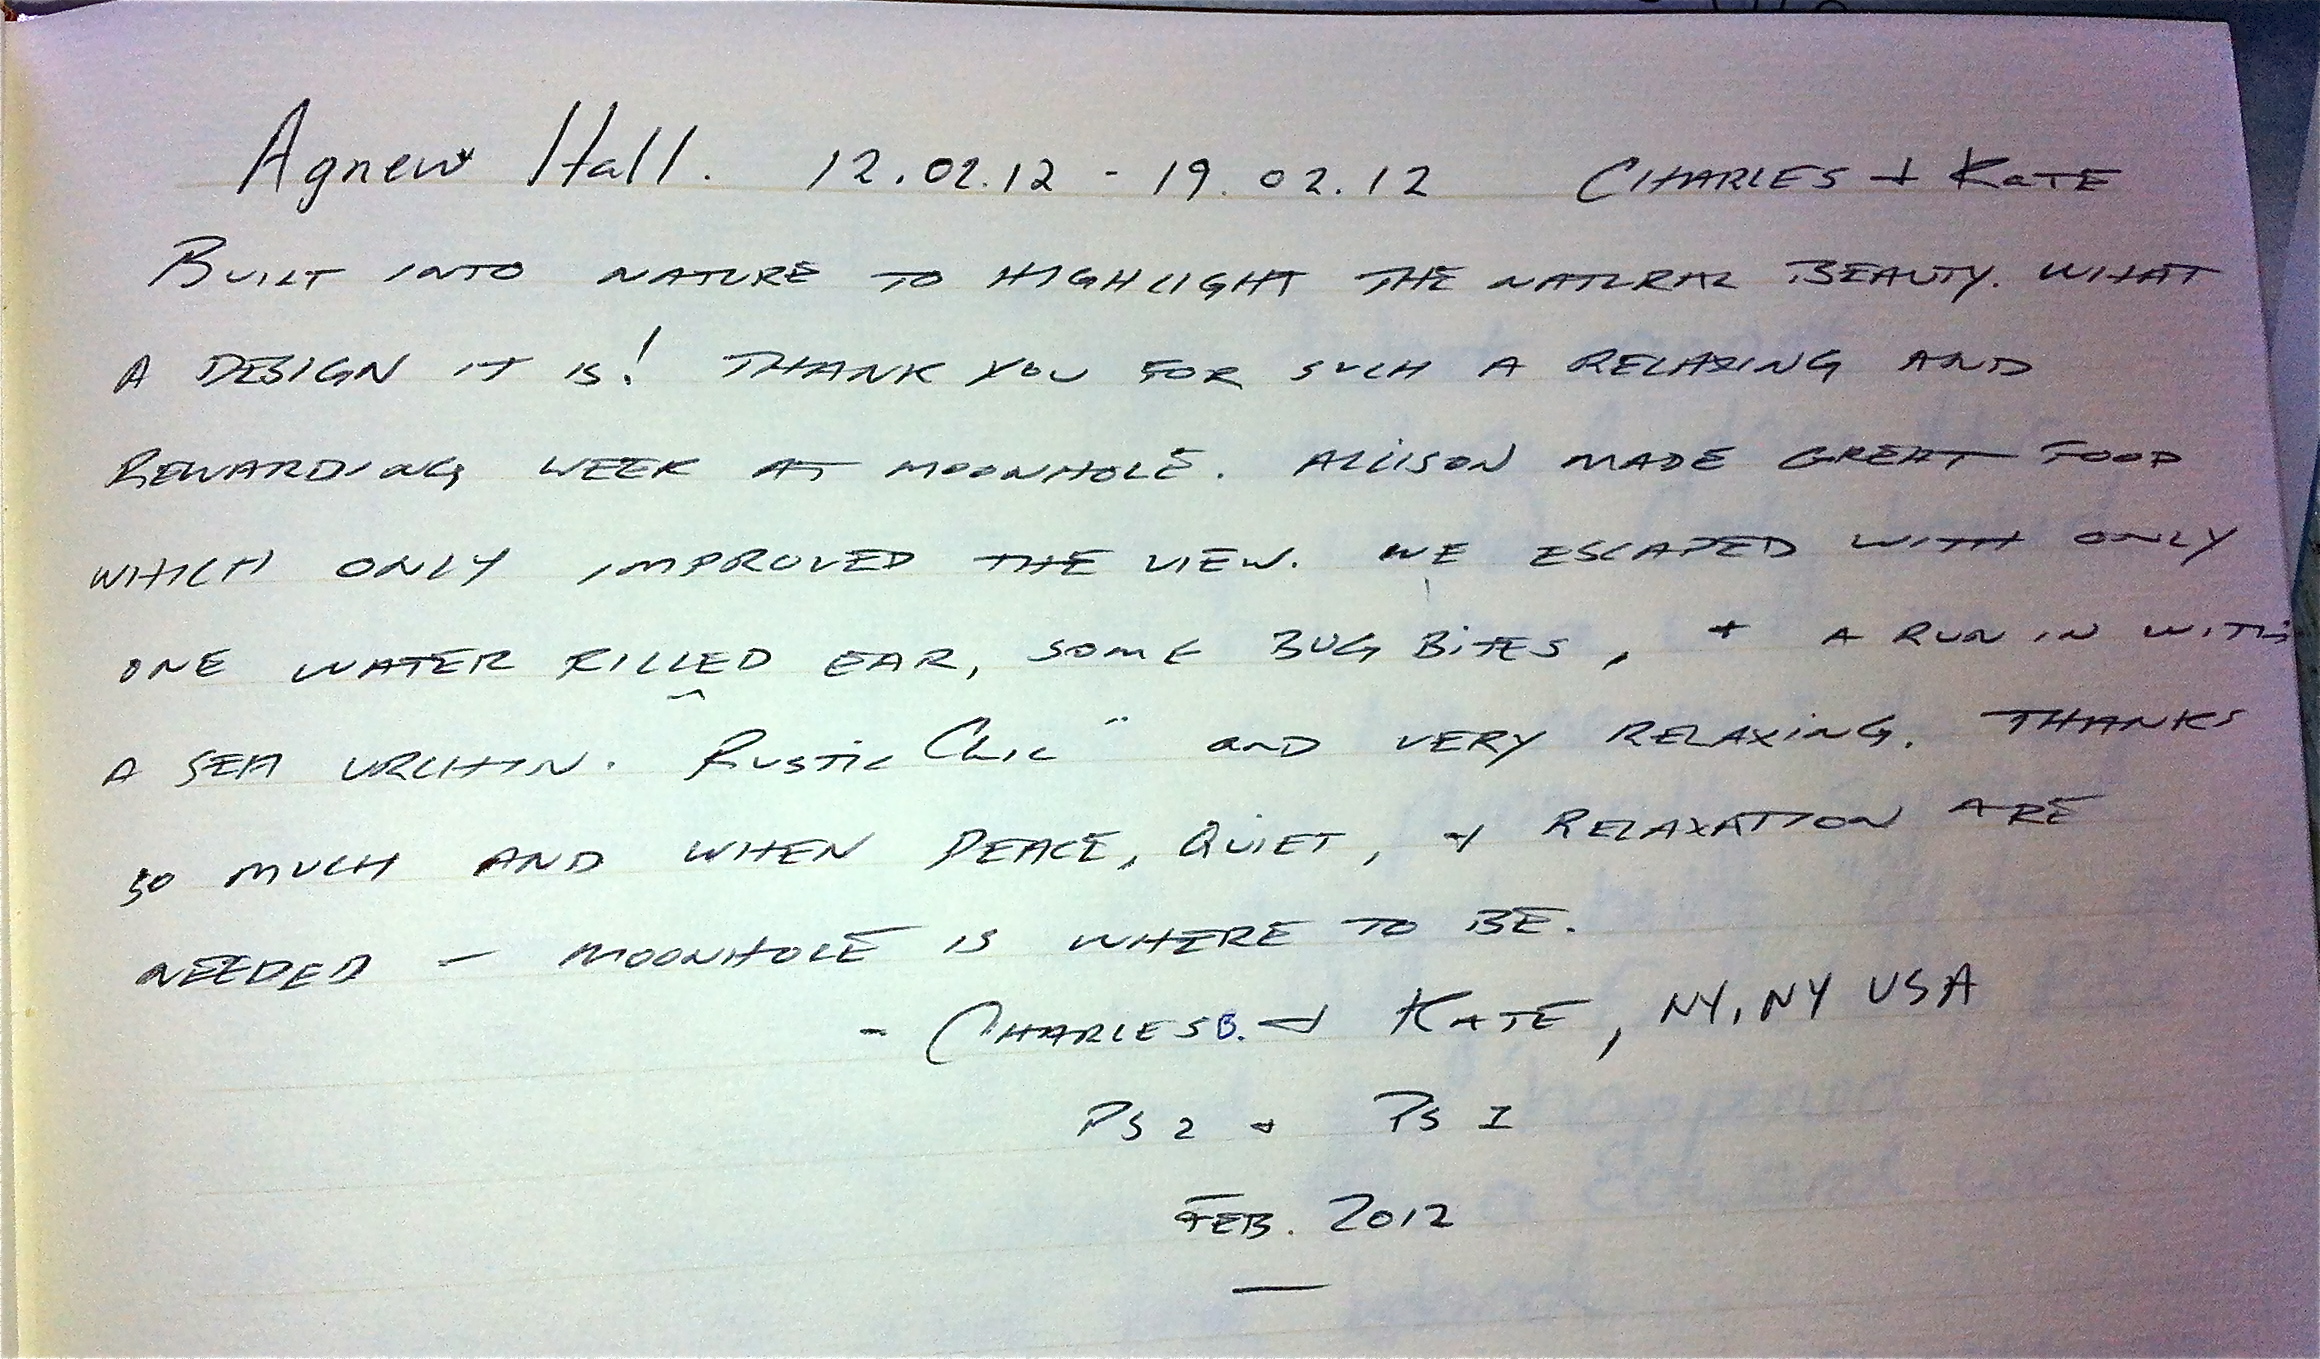 Agnew Hall. 12.02.12 - 19.02.12 CHARLES + KATE
BUILT INTO NATURE TO HIGHLIGHT THE NATURAL BEAUTY. WHAT
A DESIGN IT IS! THANK YOU FOR SUCH A RELAXING AND
REWARDING WEEK AT MOONHOLE. ALLISON MADE GREAT FOOD
WHICH ONLY IMPROVED THE VIEW. WE ESCAPED WITH ONLY
ONE WATER FILLED EAR, SOME BUG BITES, + A RUN IN WITH
A SEA URCHIN. "RUSTIC CHIC" AND VERY RELAXING. THANKS
SO MUCH AND WHEN PEACE, QUIET, + RELAXATION ARE
NEEDED - MOONHOLE IS WHERE TO BE.
- CHARLES B. + KATE, NY, NY USA
PS 2 + PS I
FEB. 2012